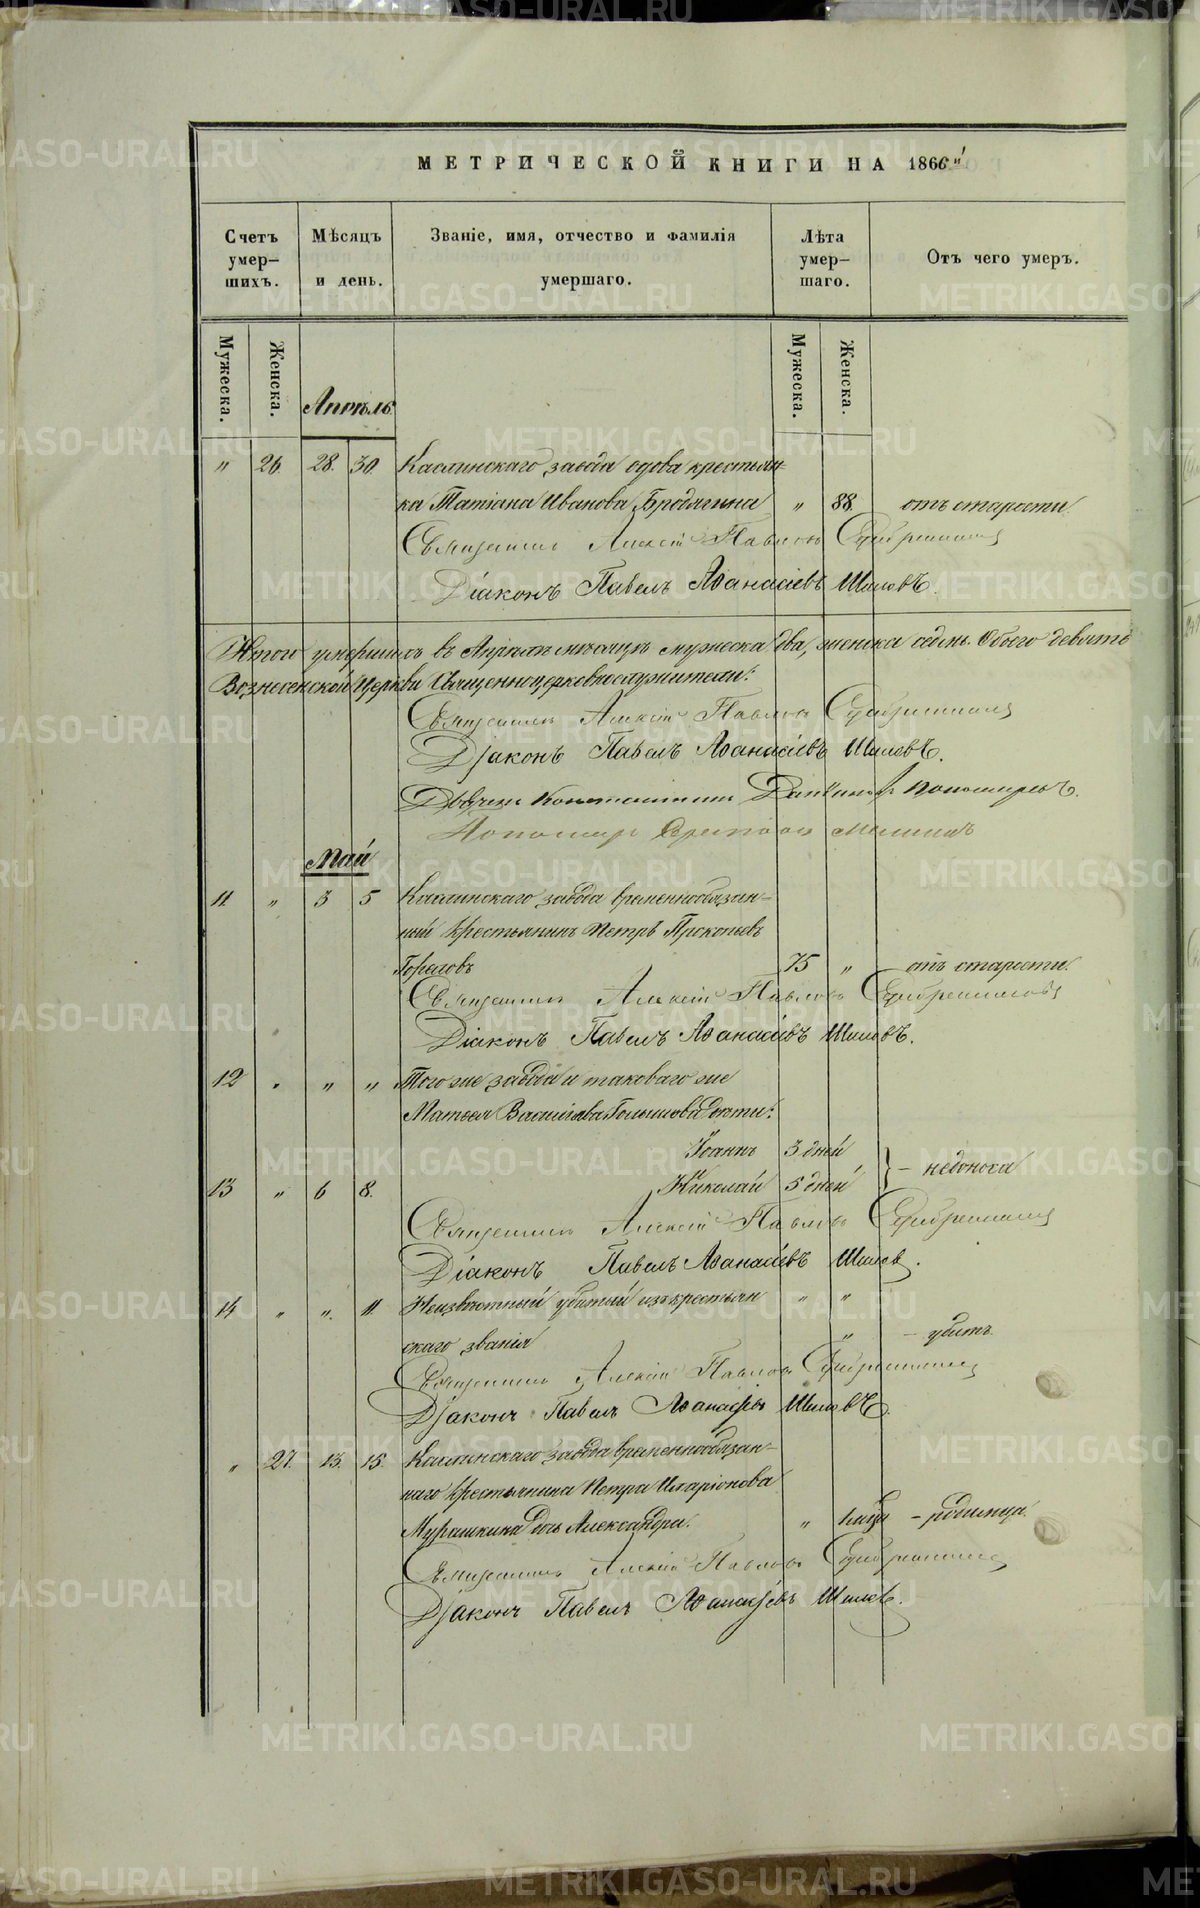 МЕТРИЧЕСКОЙ КНИГИ НА 1866"
Счетъ умер-шихъ.
Мѣсяцъ и день.
Званіе, имя, отчество и фамилія умершаго.
Лѣта умер-шаго.
Отъ чего умеръ.
Мужеска.
Женска.
Мужеска.
Женска.
Апрѣль
" 26 28. 30. Каслинскаго завода вдова крестьян-
ка Татіана Иванова Бродягина " 88. отъ старости
Священникъ Алексій Павловъ
Діаконъ Павелъ Аѳанасіевъ Шиловъ.
Итого умершихъ въ Апрѣлѣ мѣсяцѣ мужеска два, женска седмь. Обоего девять
Вознесенской Церкви Священноцерковнослужители:
Священникъ Алексій Павловъ
Діаконъ Павелъ Аѳанасіевъ Шиловъ.
Дьячекъ Константинъ
Пономарь
Май
11 " 3 5 Каслинскаго завода временнообязан-
ный крестьянинъ Петръ Прокопьевъ
75 " отъ старости.
Священникъ Алексій Павловъ
Діаконъ Павелъ Аѳанасіевъ Шиловъ.
12 " " " Того же завода и таковаго же
Матвея Васильева дѣти:
Іоаннъ 3 дней
13 " 6 8. Николай 5 дней } – недоноска
Священникъ Алексій Павловъ
Діаконъ Павелъ Аѳанасіевъ Шиловъ.
14 " ". 11 Неизвѣстный убитый изъ крестьян " "
скаго званія " – убитъ.
Священникъ Алексій Павловъ
Діаконъ Павелъ Аѳанасіевъ Шиловъ.
" 27. 13. 15. Каслинскаго завода временнообязан-
наго крестьянина Петра Иларіонова
Мурашкина дочь Александра. " – родимца.
Священникъ Алексій Павловъ
Діаконъ Павелъ Аѳанасіевъ Шиловъ.
METRIKI.GASO-URAL.RU